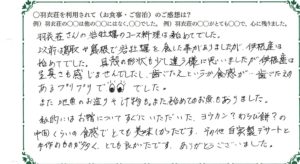 ○羽衣荘を利用されて(お食事・ご宿泊)のご感想は?
例)羽衣荘の○○は他の○○にはなく○○でした。 例)羽衣荘の○○がとても○○で、心に残りました。
羽衣荘さんの岩牡蠣のコース料理は始めてでした。
以前鳥取や島根で岩牡蠣を食した事がありましたが伊根産は
始めてでした。 見殻の形状も少し違う様に思いましたが伊根産は
生臭さも感じませんでしたし歯ごたえというか食感が
あるプリプリで でした。
また地魚のお造りそげ物もまた始めてのお魚もありました。
私的にはお膳についていただいた、ヨウカン?わらび餅?の
中間くらいの食感でとても美味しかったです。その他自家製デザートと
手作りのものが多く、とても良かったです。ありがとうございました。